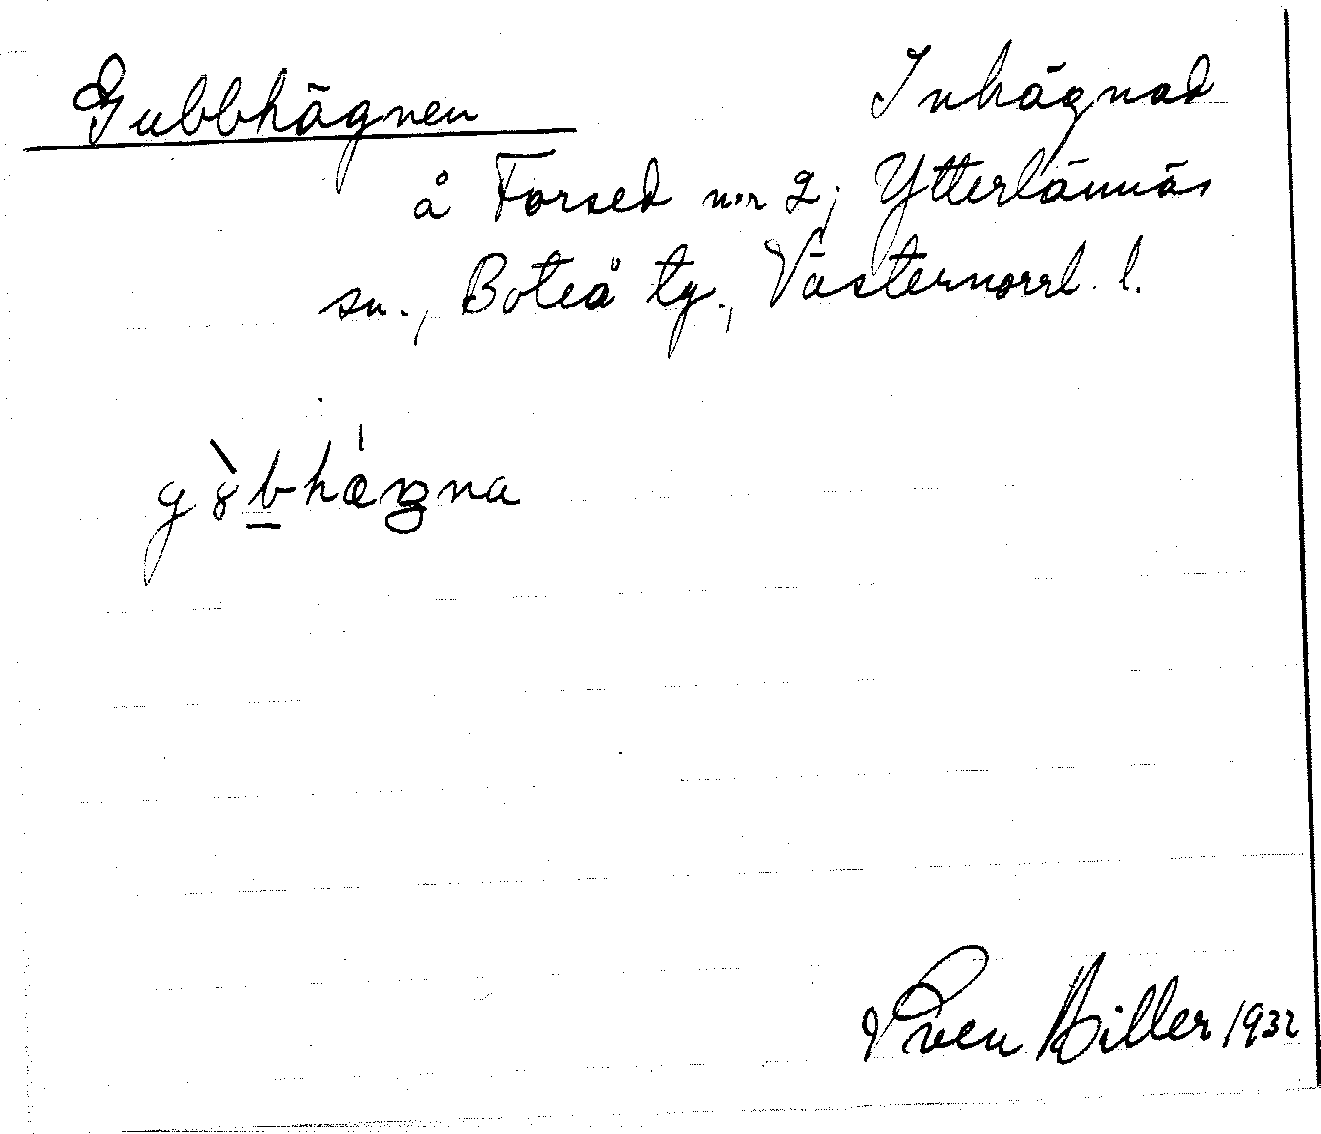 Gubbhägnen Inhägnad
å Forsed n:r 2, Ytterlännäs
sn., Boteå tg., Västernorrl. l.
Sven Hiller 1932